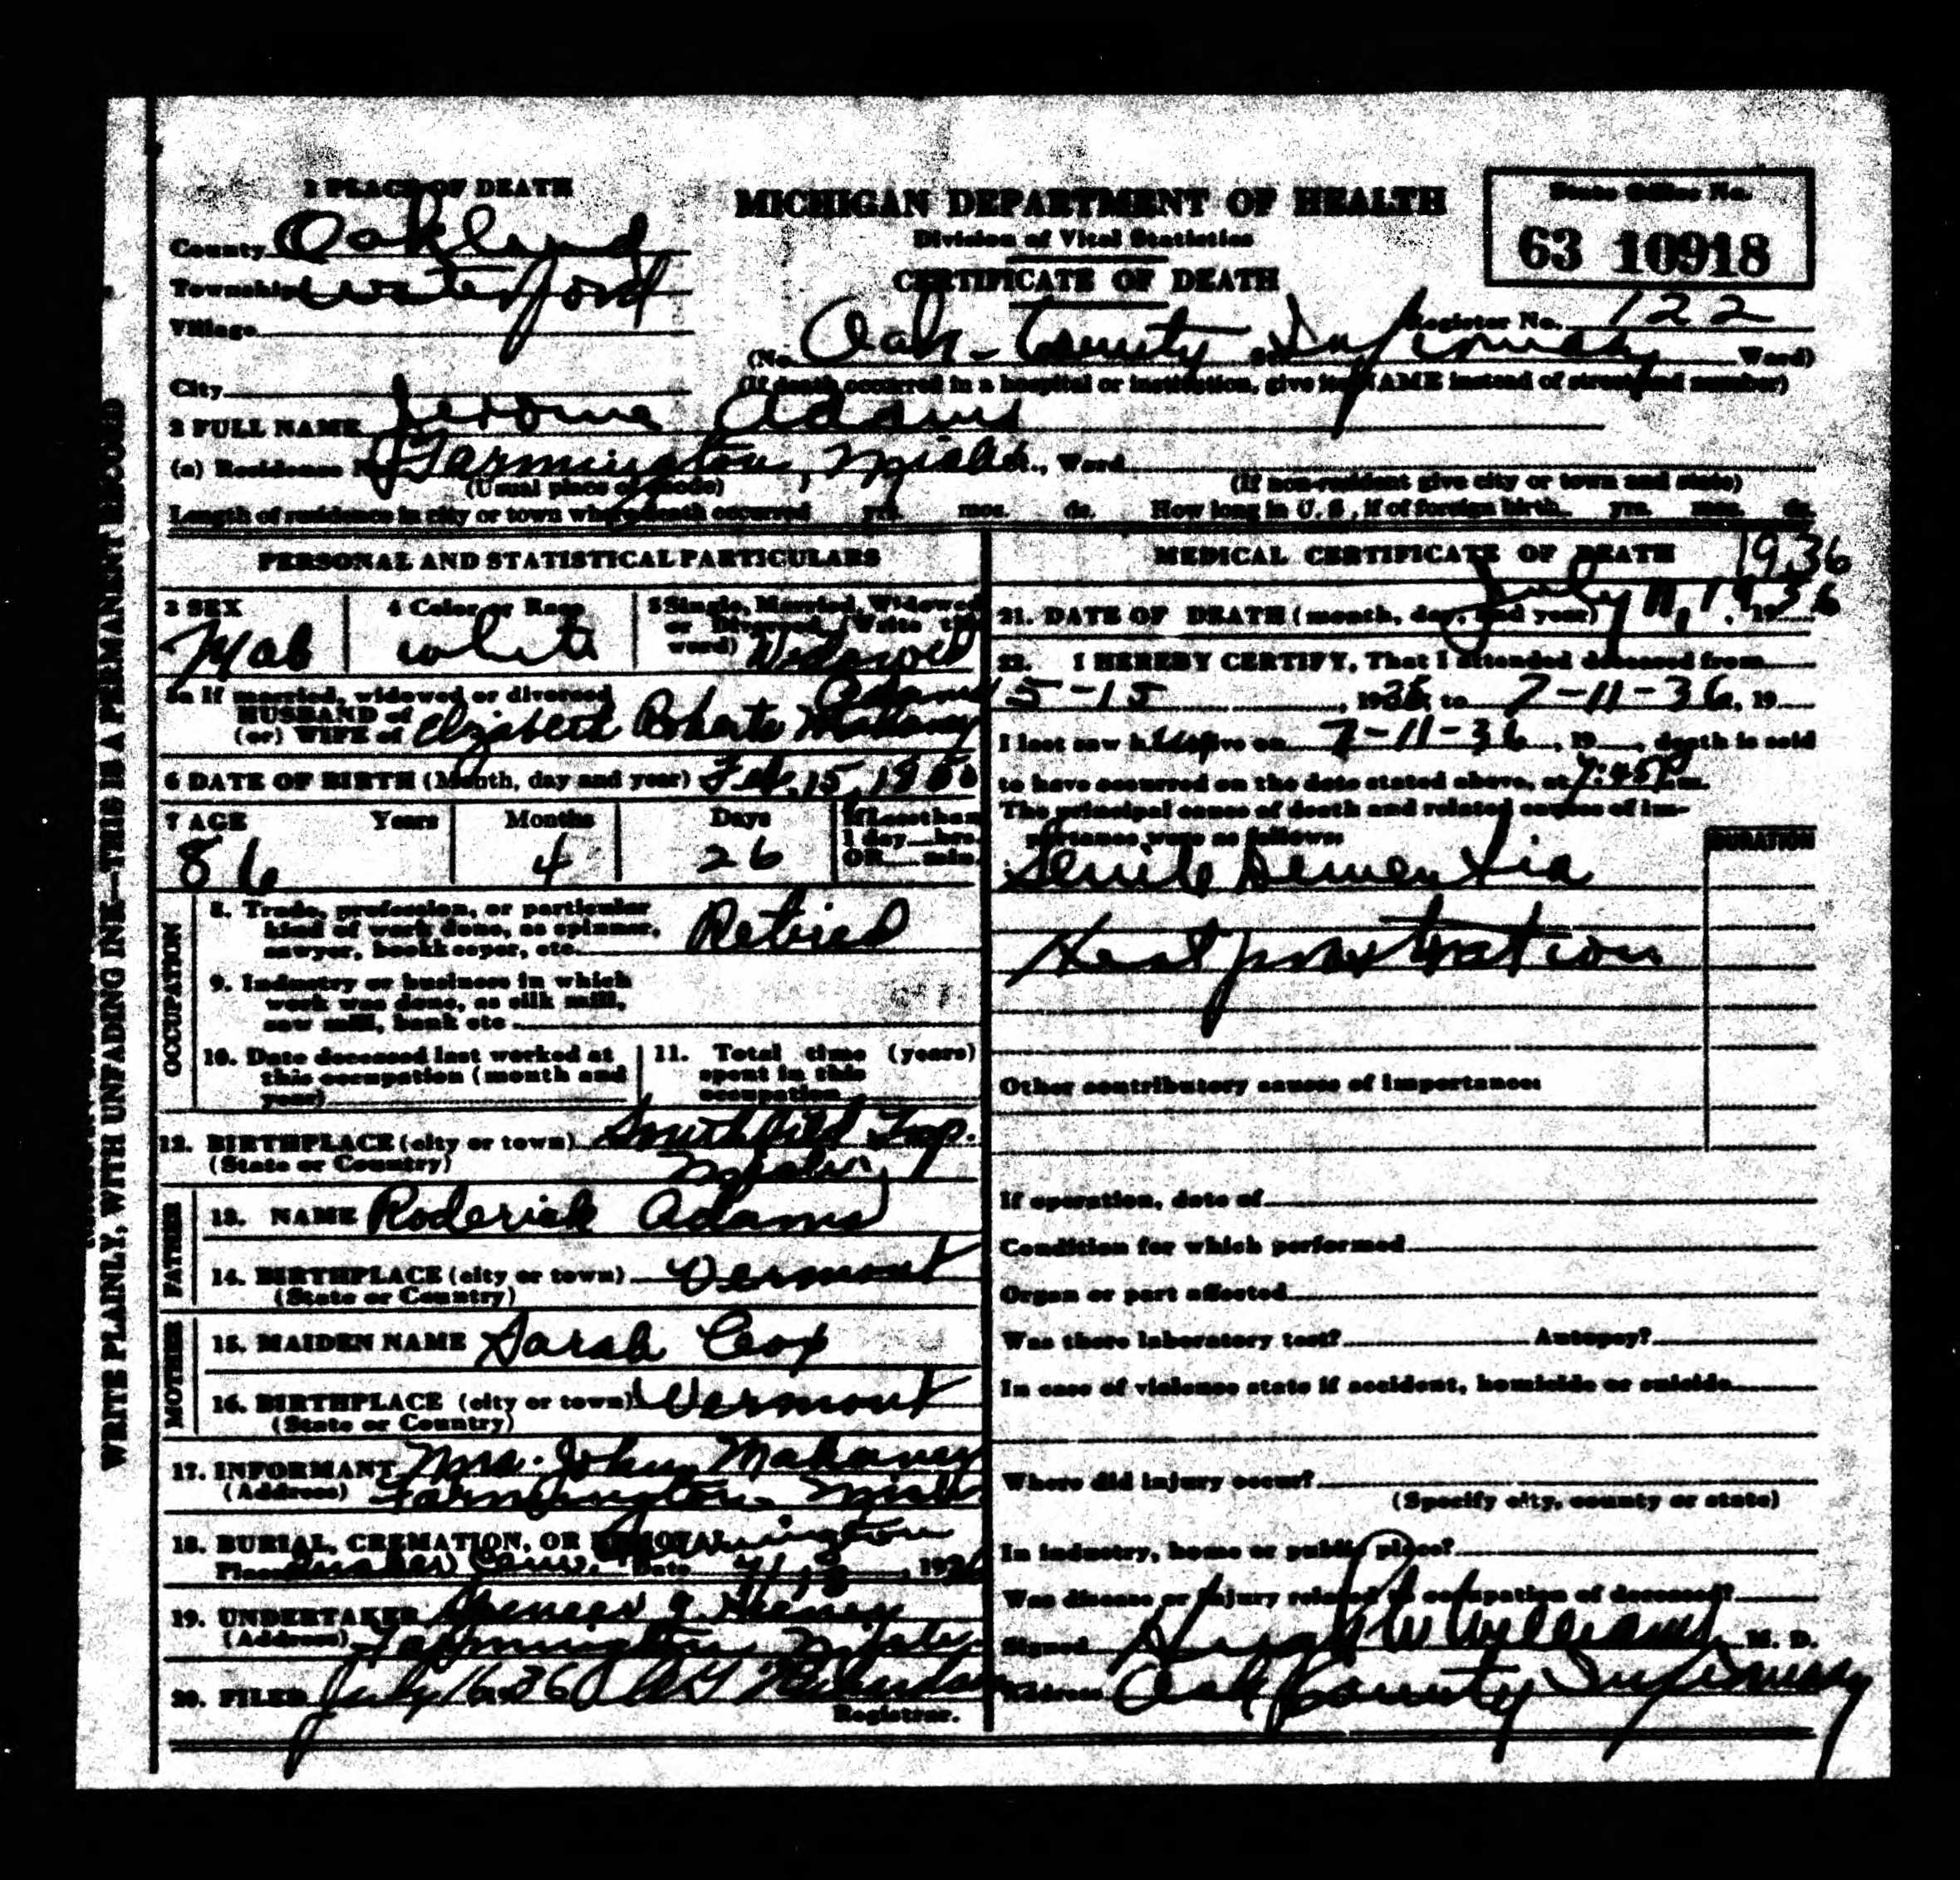 1 PLACE OF DEATH
County Oakland
Township Waterford
Village
City
MICHIGAN DEPARTMENT OF HEALTH
Division of Vital Statistics
CERTIFICATE OF DEATH
State Office No.
63 10918
Register No. 122
(No. Oak. County St. Infirmary Ward)
(If death occurred in a hospital or institution, give its NAME instead of street and number)
2 FULL NAME Jerome Adams
(a) Residence No. Farmington, Mich. St., Ward
(Usual place of abode)
(If non-resident give city or town and state)
Length of residence in city or town where death occurred yrs. mos. ds. How long in U. S., if of foreign birth. yrs. mos. ds.
PERSONAL AND STATISTICAL PARTICULARS
3 SEX
Male
4 Color or Race
White
5 Single, Married, Widowed
or Divorced (Write the
word) Widowed
5a If married, widowed or divorced
HUSBAND of
(or) WIFE of Elizabeth Roberts Mahaney Adams
6 DATE OF BIRTH (Month, day and year) Feb. 15, 1850
7 AGE Years Months Days If less than
1 day hrs.
OR min.
86 4 26
OCCUPATION
8. Trade, profession, or particular
kind of work done, as spinner,
sawyer, bookkeeper, etc. Retired
9. Industry or business in which
work was done, as silk mill,
saw mill, bank etc
10. Date deceased last worked at
this occupation (month and
year)
11. Total time (years)
spent in this
occupation
12. BIRTHPLACE (city or town) Southfield Twp.
(State or Country) Mich.
FATHER
13. NAME Roderick Adams
14. BIRTHPLACE (city or town) Vermont
(State or Country)
MOTHER
15. MAIDEN NAME Sarah Cox
16. BIRTHPLACE (city or town) Vermont
(State or Country)
17. INFORMANT Mrs. John Mahaney
(Address) Farmington Mich
18. BURIAL, CREMATION, OR REMOVAL Farmington
Place Quaker Cem. Date 7/13, 1936
19. UNDERTAKER Spencer J. Heeney
(Address) Farmington Mich.
20. FILED July 16, 36 Richardson
Registrar.
MEDICAL CERTIFICATE OF DEATH 1936
21. DATE OF DEATH (month, day, and year) July 11, 1936
22. I HEREBY CERTIFY, That I attended deceased from
5-15, 1936, to 7-11-36, 19
I last saw h alive on 7-11-36, 19, death is said
to have occurred on the date stated above, at 7:45P m.
The principal cause of death and related causes of im-
portance were as follows:
DURATION
Senile Dementia
Heat prostration
Other contributory causes of importance:
If operation, date of
Condition for which performed
Organ or part affected
Was there laboratory test? Autopsy?
In case of violence state if accident, homicide or suicide
Where did injury occur?
(Specify city, county or state)
In industry, home or public place?
Was disease or injury related to occupation of deceased?
Signed Hugh W Williams, M. D.
Address Oak County Infirmary
WRITE PLAINLY, WITH UNFADING INK—THIS IS A PERMANENT RECORD